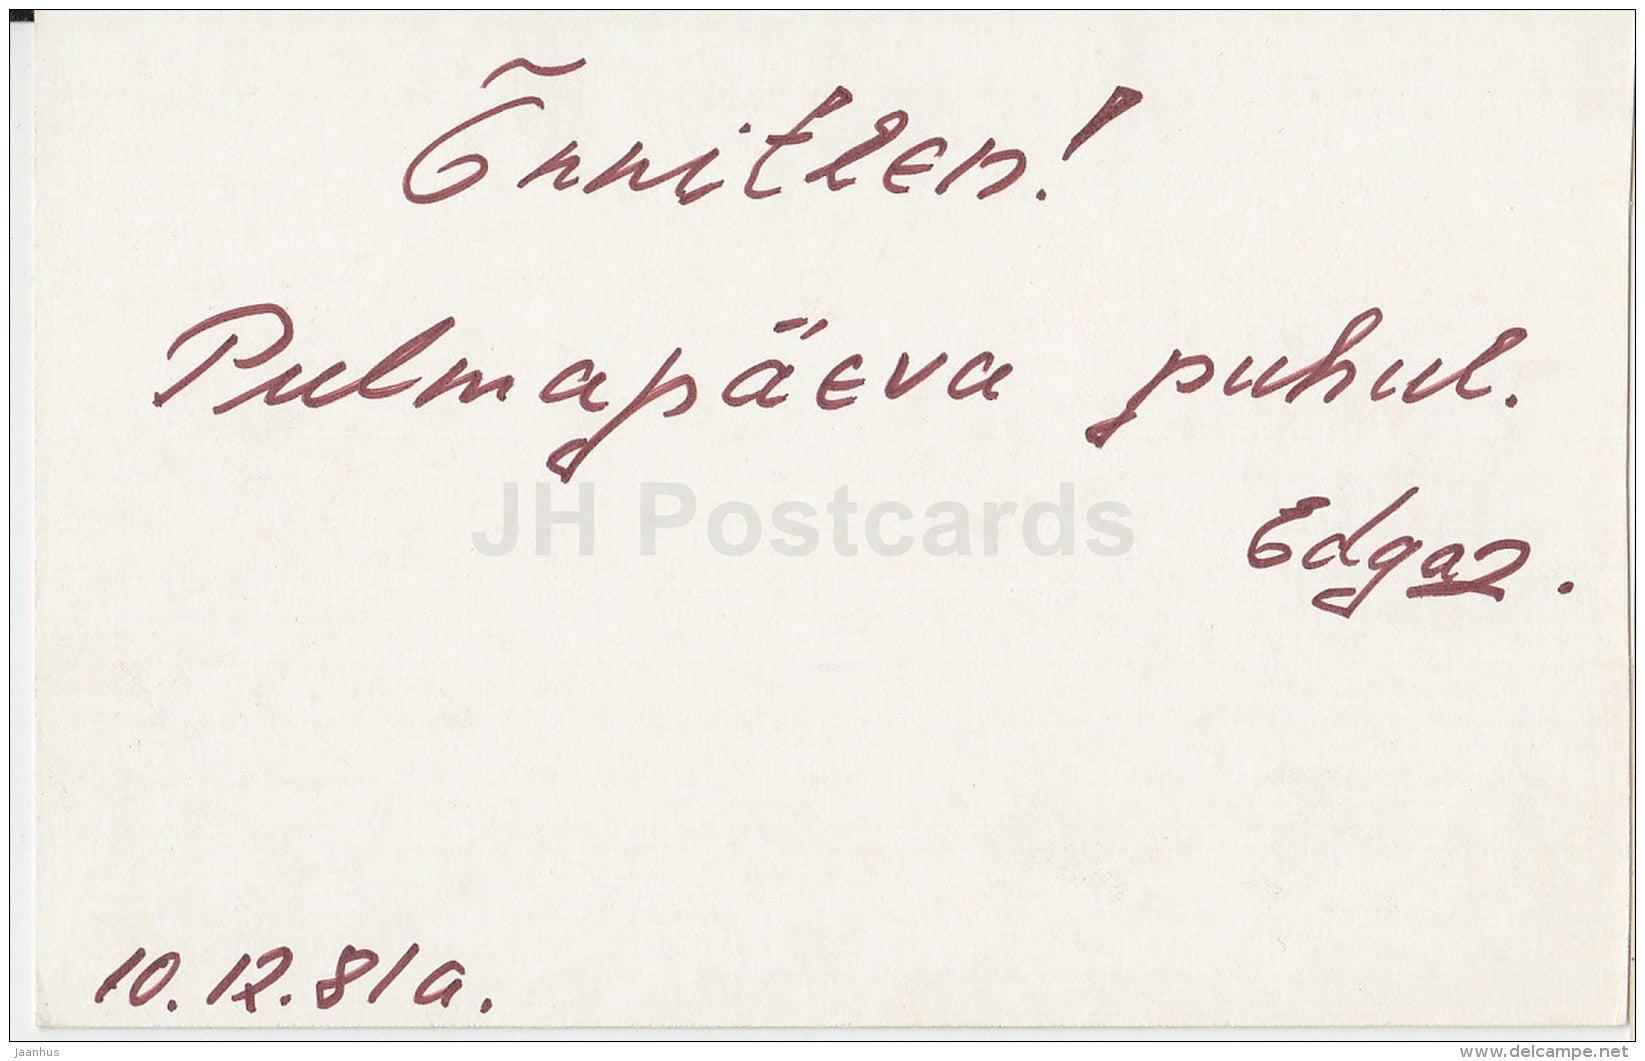 Õnnitlen!
Pulmapäeva puhul.
JH Postcards
Edgar.
10.12.81a.
jaanhus
delcampe.net